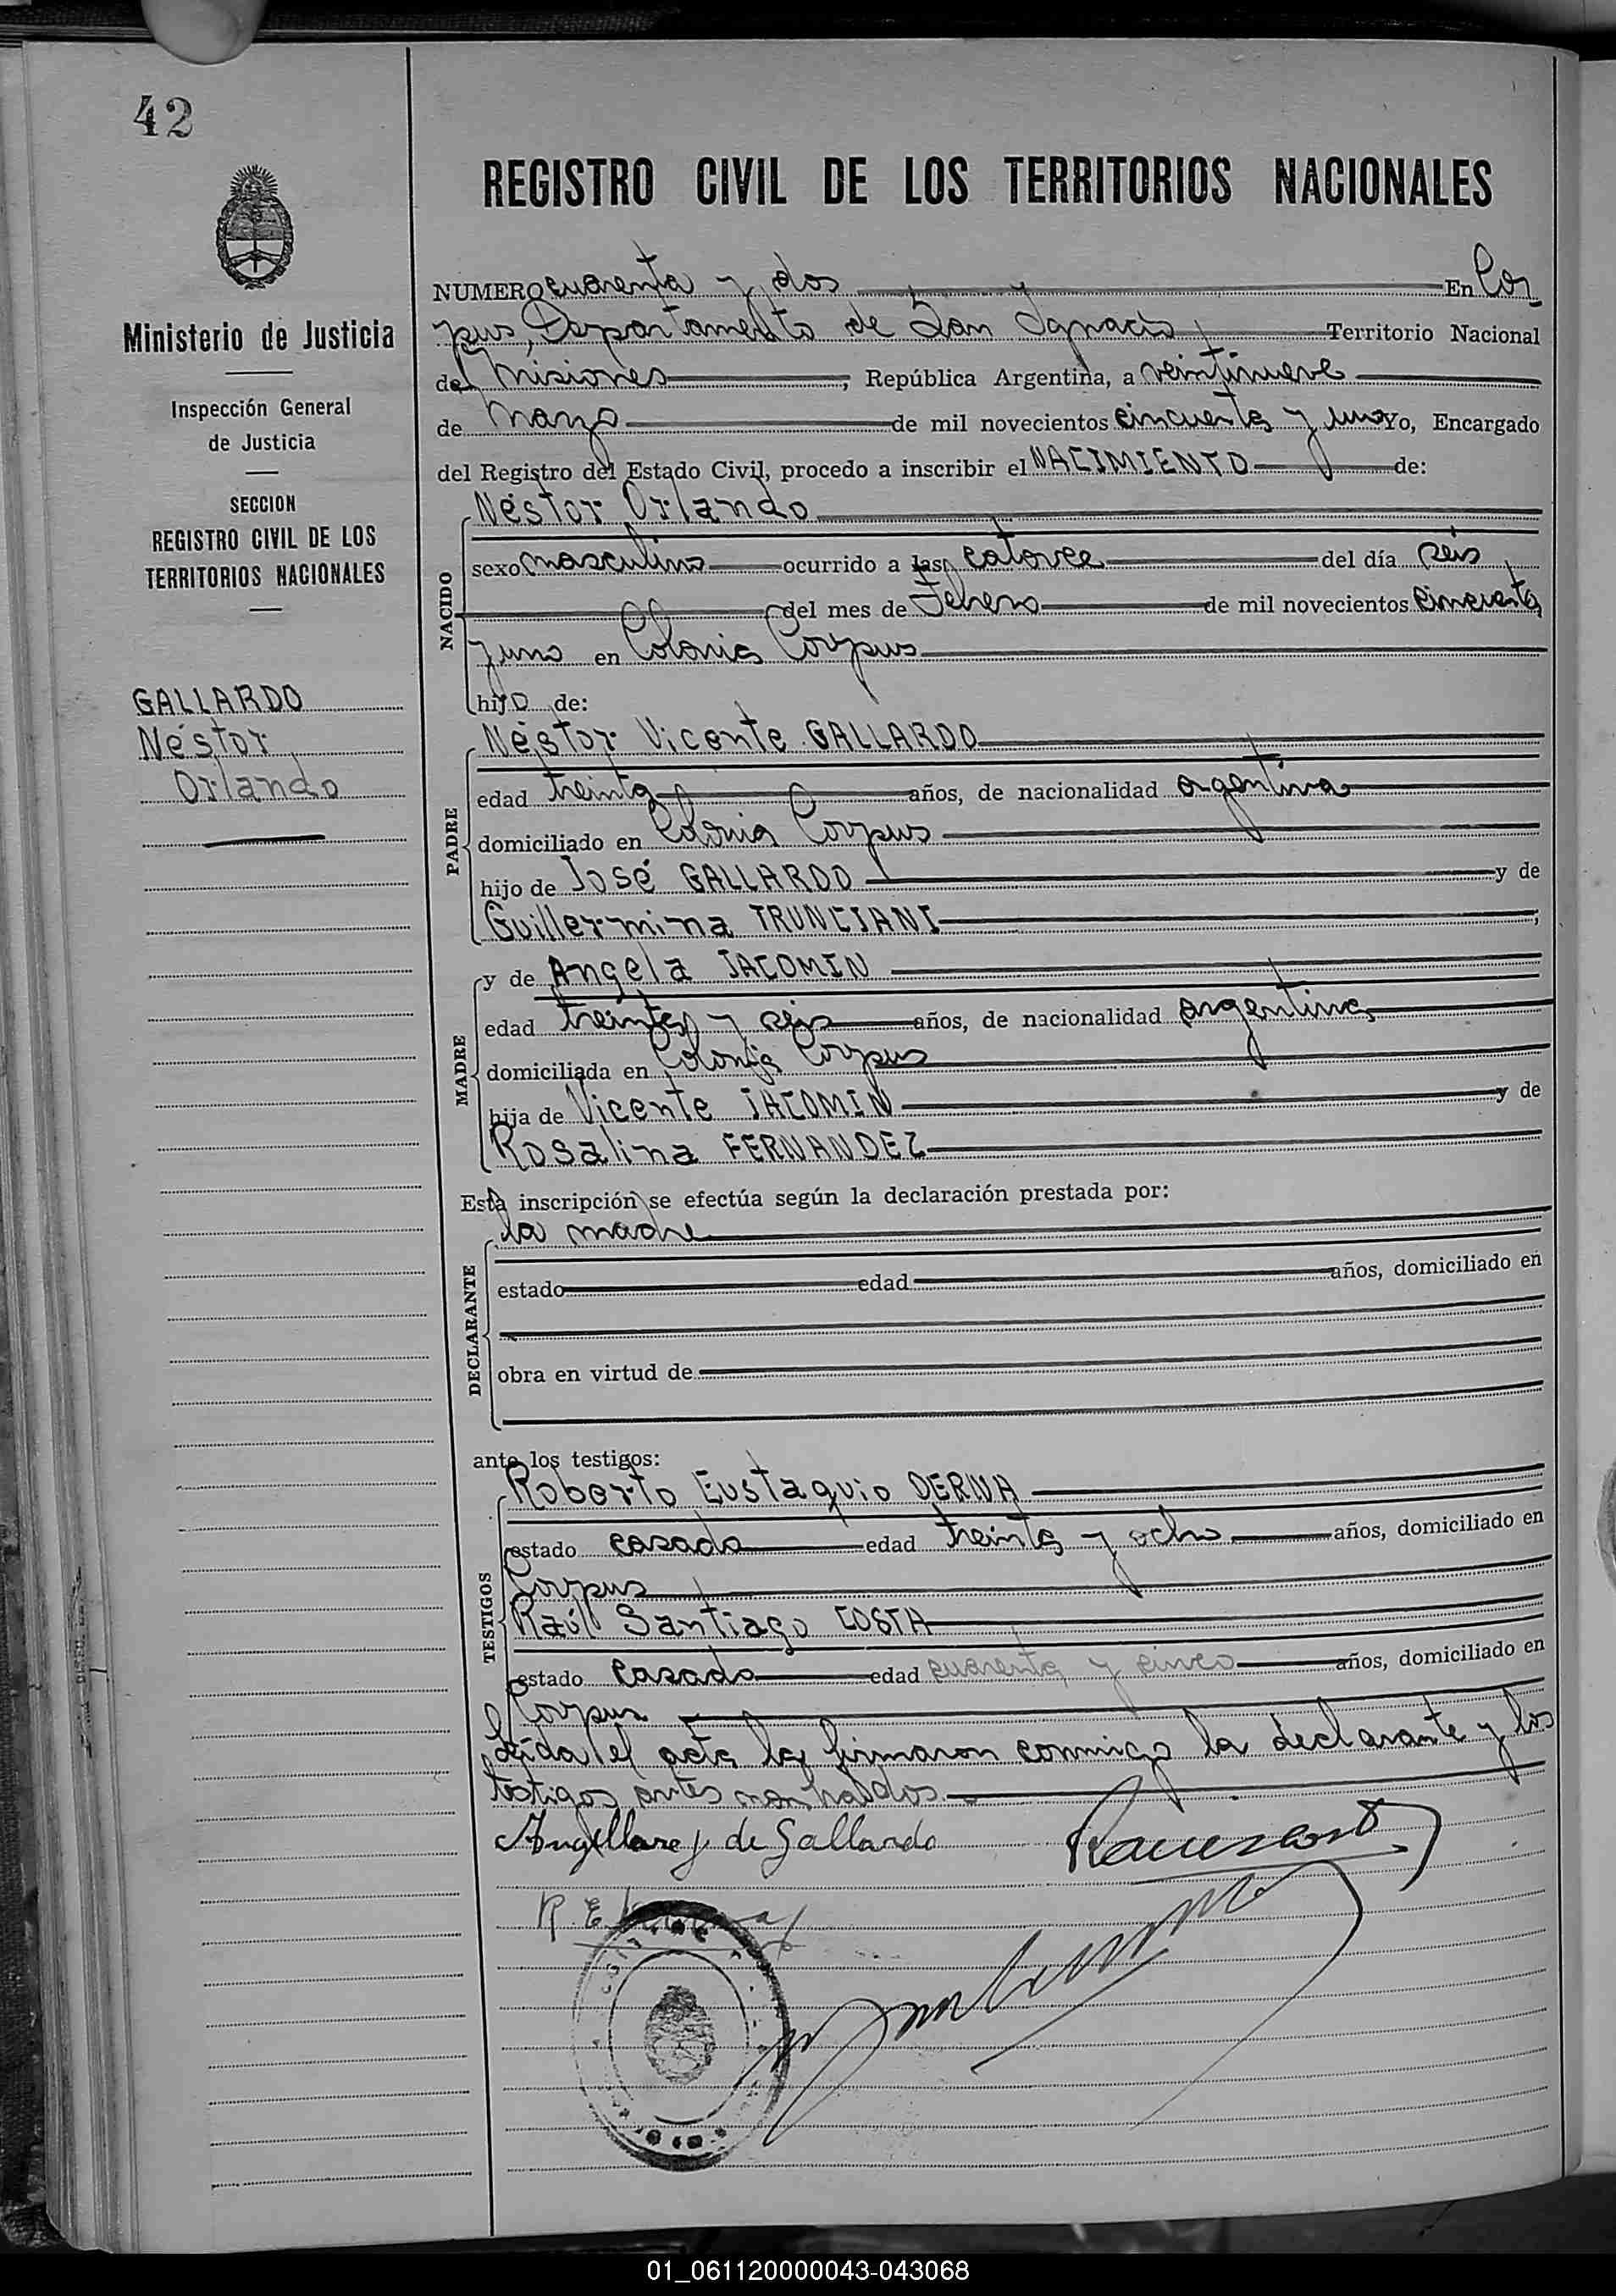 42
REGISTRO CIVIL DE LOS TERRITORIOS NACIONALES
Ministerio de Justicia
Inspección General
de Justicia
SECCION
REGISTRO CIVIL DE LOS
TERRITORIOS NACIONALES
GALLARDO
Néstor
Orlando
NUMERO cuarenta y dos En Cor
pus, Departamento de San Ignacio, Territorio Nacional
de Misiones, República Argentina, a veintinueve
de Marzo de mil novecientos cincuenta y uno Yo, Encargado
del Registro del Estado Civil, procedo a inscribir el NACIMIENTO de:
NACIDO
Néstor Orlando
sexo masculino ocurrido a las catorce del día seis
del mes de Febrero de mil novecientos cincuenta
y uno en Colonia Corpus
hijo de:
PADRE
Néstor Vicente GALLARDO
edad treinta años, de nacionalidad argentina
domiciliado en Colonia Corpus
hijo de José GALLARDO y de
Guillermina TRUNCIANI;
MADRE
y de Angela JACOMIN
edad treinta y seis años, de nacionalidad argentina
domiciliada en Colonia Corpus
hija de Vicente JACOMIN y de
Rosalina FERNANDEZ
Esta inscripción se efectúa según la declaración prestada por:
DECLARANTE
la madre
estado edad años, domiciliado en
obra en virtud de
ante los testigos:
TESTIGOS
Roberto Eustaquio DERNA
estado casado edad treinta y ocho años, domiciliado en
Corpus
Raúl Santiago COSTA
estado casado edad cuarenta y cinco años, domiciliado en
Corpus
Leida el acta la firmaron conmigo la declarante y los
testigos antes nombrados
J. de Gallardo
R. E.
01_061120000043-043068